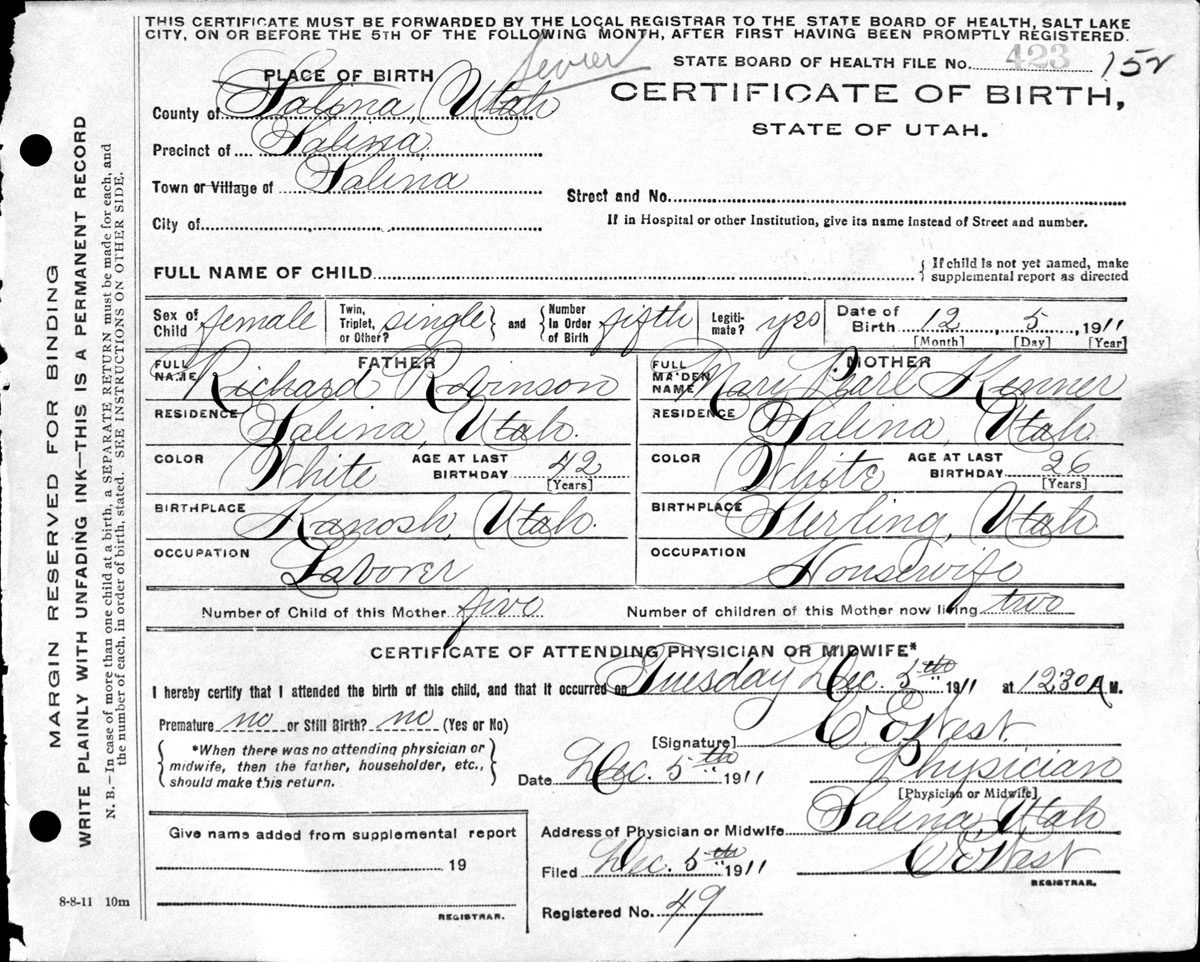 THIS CERTIFICATE MUST BE FORWARDED BY THE LOCAL REGISTRAR TO THE STATE BOARD OF HEALTH, SALT LAKE
CITY, ON OR BEFORE THE 5TH OF THE FOLLOWING MONTH, AFTER FIRST HAVING BEEN PROMPTLY REGISTERED.
Sevier
STATE BOARD OF HEALTH FILE No. 423 152
PLACE OF BIRTH
CERTIFICATE OF BIRTH,
STATE OF UTAH.
County of Salina, Utah
Precinct of Salina.
Town or Village of Salina
Street and No.
City of
If in Hospital or other Institution, give its name instead of Street and number.
FULL NAME OF CHILD
{ If child is not yet named, make
supplemental report as directed
Sex of Child female
Twin, Triplet, or Other? single } and { Number In Order of Birth fifth
Legiti- mate? yes
Date of Birth 12, 5, 1911
[Month] [Day] [Year]
FATHER
FULL NAME Richard Robinson
RESIDENCE Salina, Utah.
COLOR White AGE AT LAST BIRTHDAY 42
[Years]
BIRTHPLACE Kanosh, Utah.
OCCUPATION Laborer
MOTHER
FULL MAIDEN NAME Mary Pearl Kenner
RESIDENCE Salina, Utah.
COLOR White AGE AT LAST BIRTHDAY 26
[Years]
BIRTHPLACE Sterling, Utah.
OCCUPATION Housewife
Number of Child of this Mother five
Number of children of this Mother now living two
CERTIFICATE OF ATTENDING PHYSICIAN OR MIDWIFE*
I hereby certify that I attended the birth of this child, and that it occurred on Tuesday Dec. 5th 1911 at 12:30 A M.
Premature no or Still Birth? no (Yes or No)
{ *When there was no attending physician or
midwife, then the father, householder, etc.,
should make this return. }
[Signature] C. E. West.
Date Dec. 5th 1911
Physician
[Physician or Midwife]
Give name added from supplemental report
19
REGISTRAR.
Address of Physician or Midwife Salina, Utah
Filed Dec. 5th 1911 C E West
REGISTRAR.
Registered No. 49
MARGIN RESERVED FOR BINDING
WRITE PLAINLY WITH UNFADING INK—THIS IS A PERMANENT RECORD
N. B.—In case of more than one child at a birth, a SEPARATE RETURN must be made for each, and
the number of each, in order of birth, stated. SEE INSTRUCTIONS ON OTHER SIDE.
8-8-11 10m